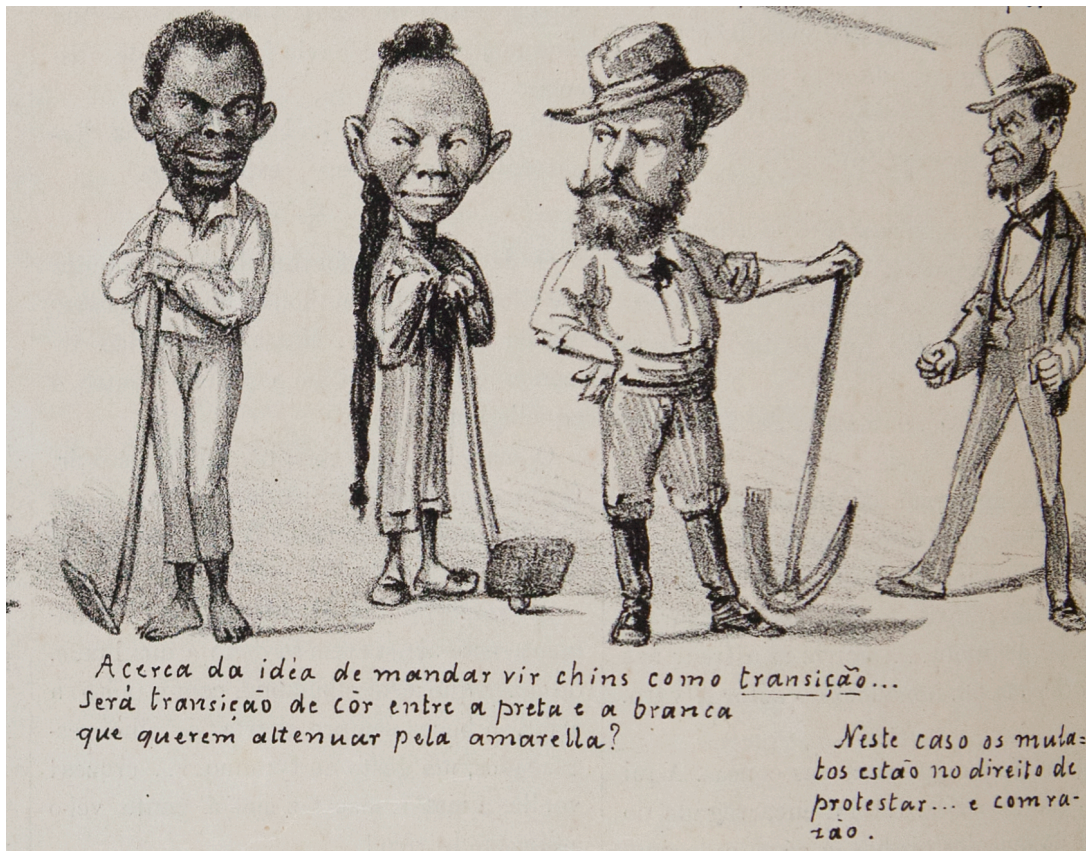 Acerca da idéa de mandar vir chins como transição...
Será transição de còr entre a preta e a branca
que querem attenuar pela amarella?
Neste caso os mula=
tos estão no direito de
protestar... e com ra-
zão.